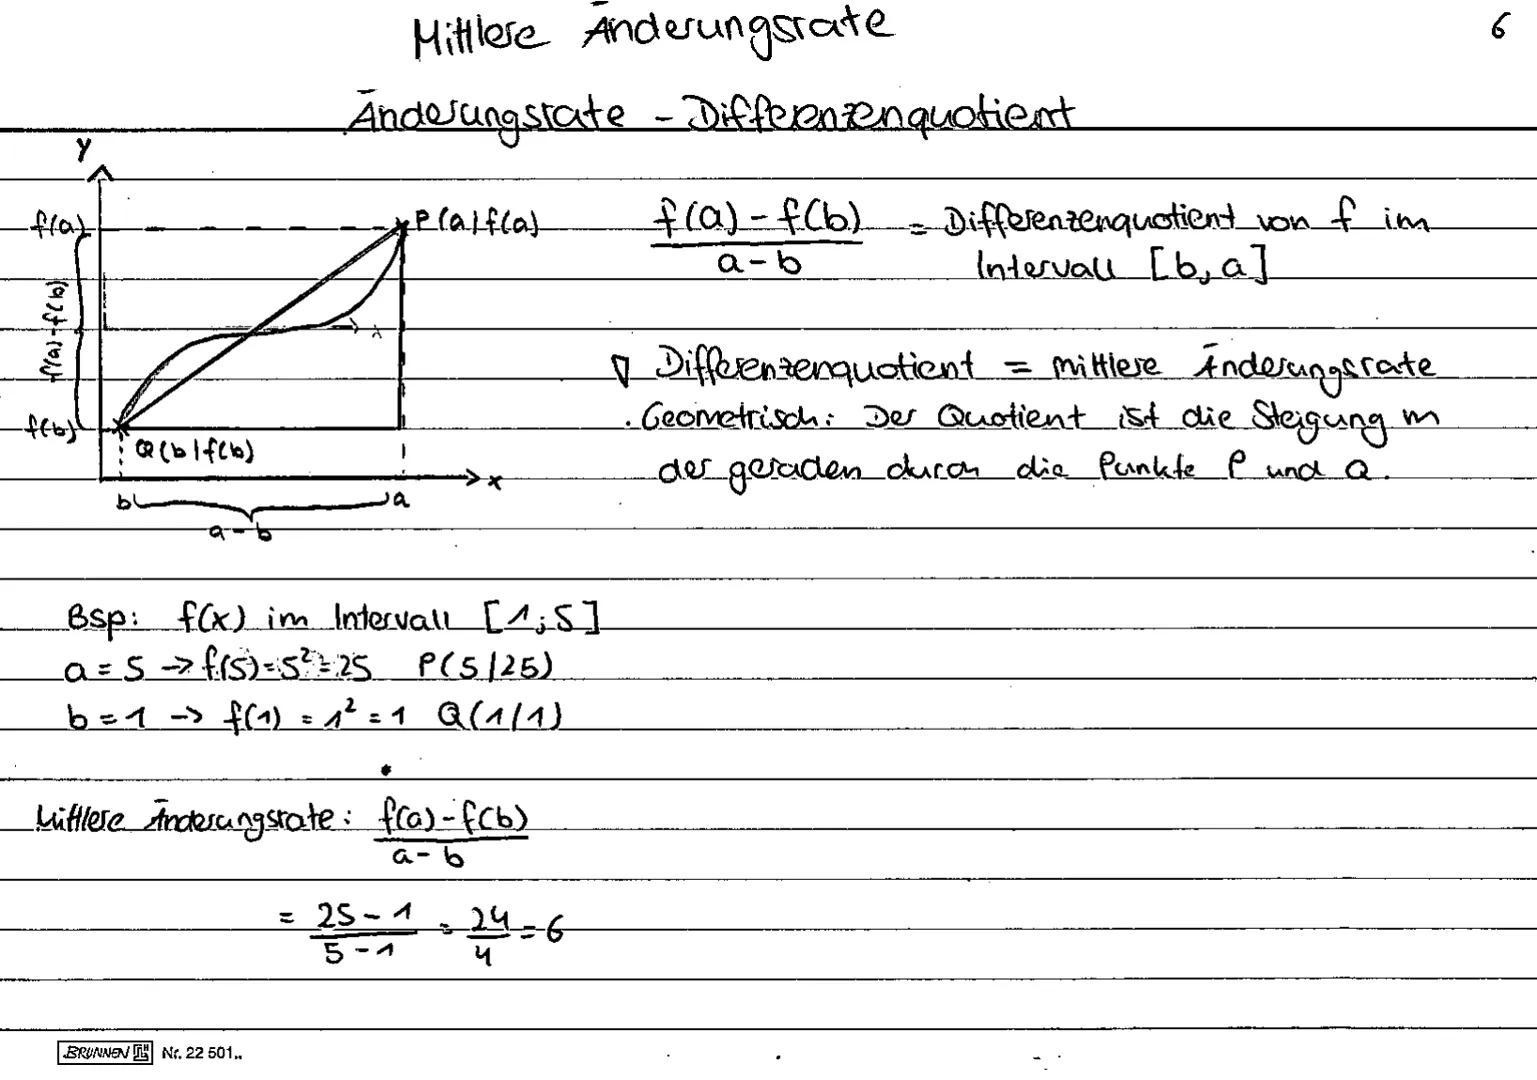 Mittlere Änderungsrate
6
Änderungsrate - Differenzenquotient
y
f(a)
P(a|f(a)
f(a)-f(b) = Differenzenquotient von f im
a-b Intervall [b,a]
f(a)-f(b)
x
Differenzenquotient = mittlere Änderungsrate
. Geometrisch: Der Quotient ist die Steigung m
f(b)
Q(b|f(b)
der geraden durch die Punkte P und Q.
x
b a
a-b
Bsp: f(x) im Intervall [1;5]
a=5 -> f(5)=5²=25 P(5/25)
b=1 -> f(1)=1²=1 Q(1/1)
Mittlere Änderungsrate: f(a)-f(b)
a-b
= 25-1 = 24 = 6
5-1 4
BRUNNEN Nr. 22 501..